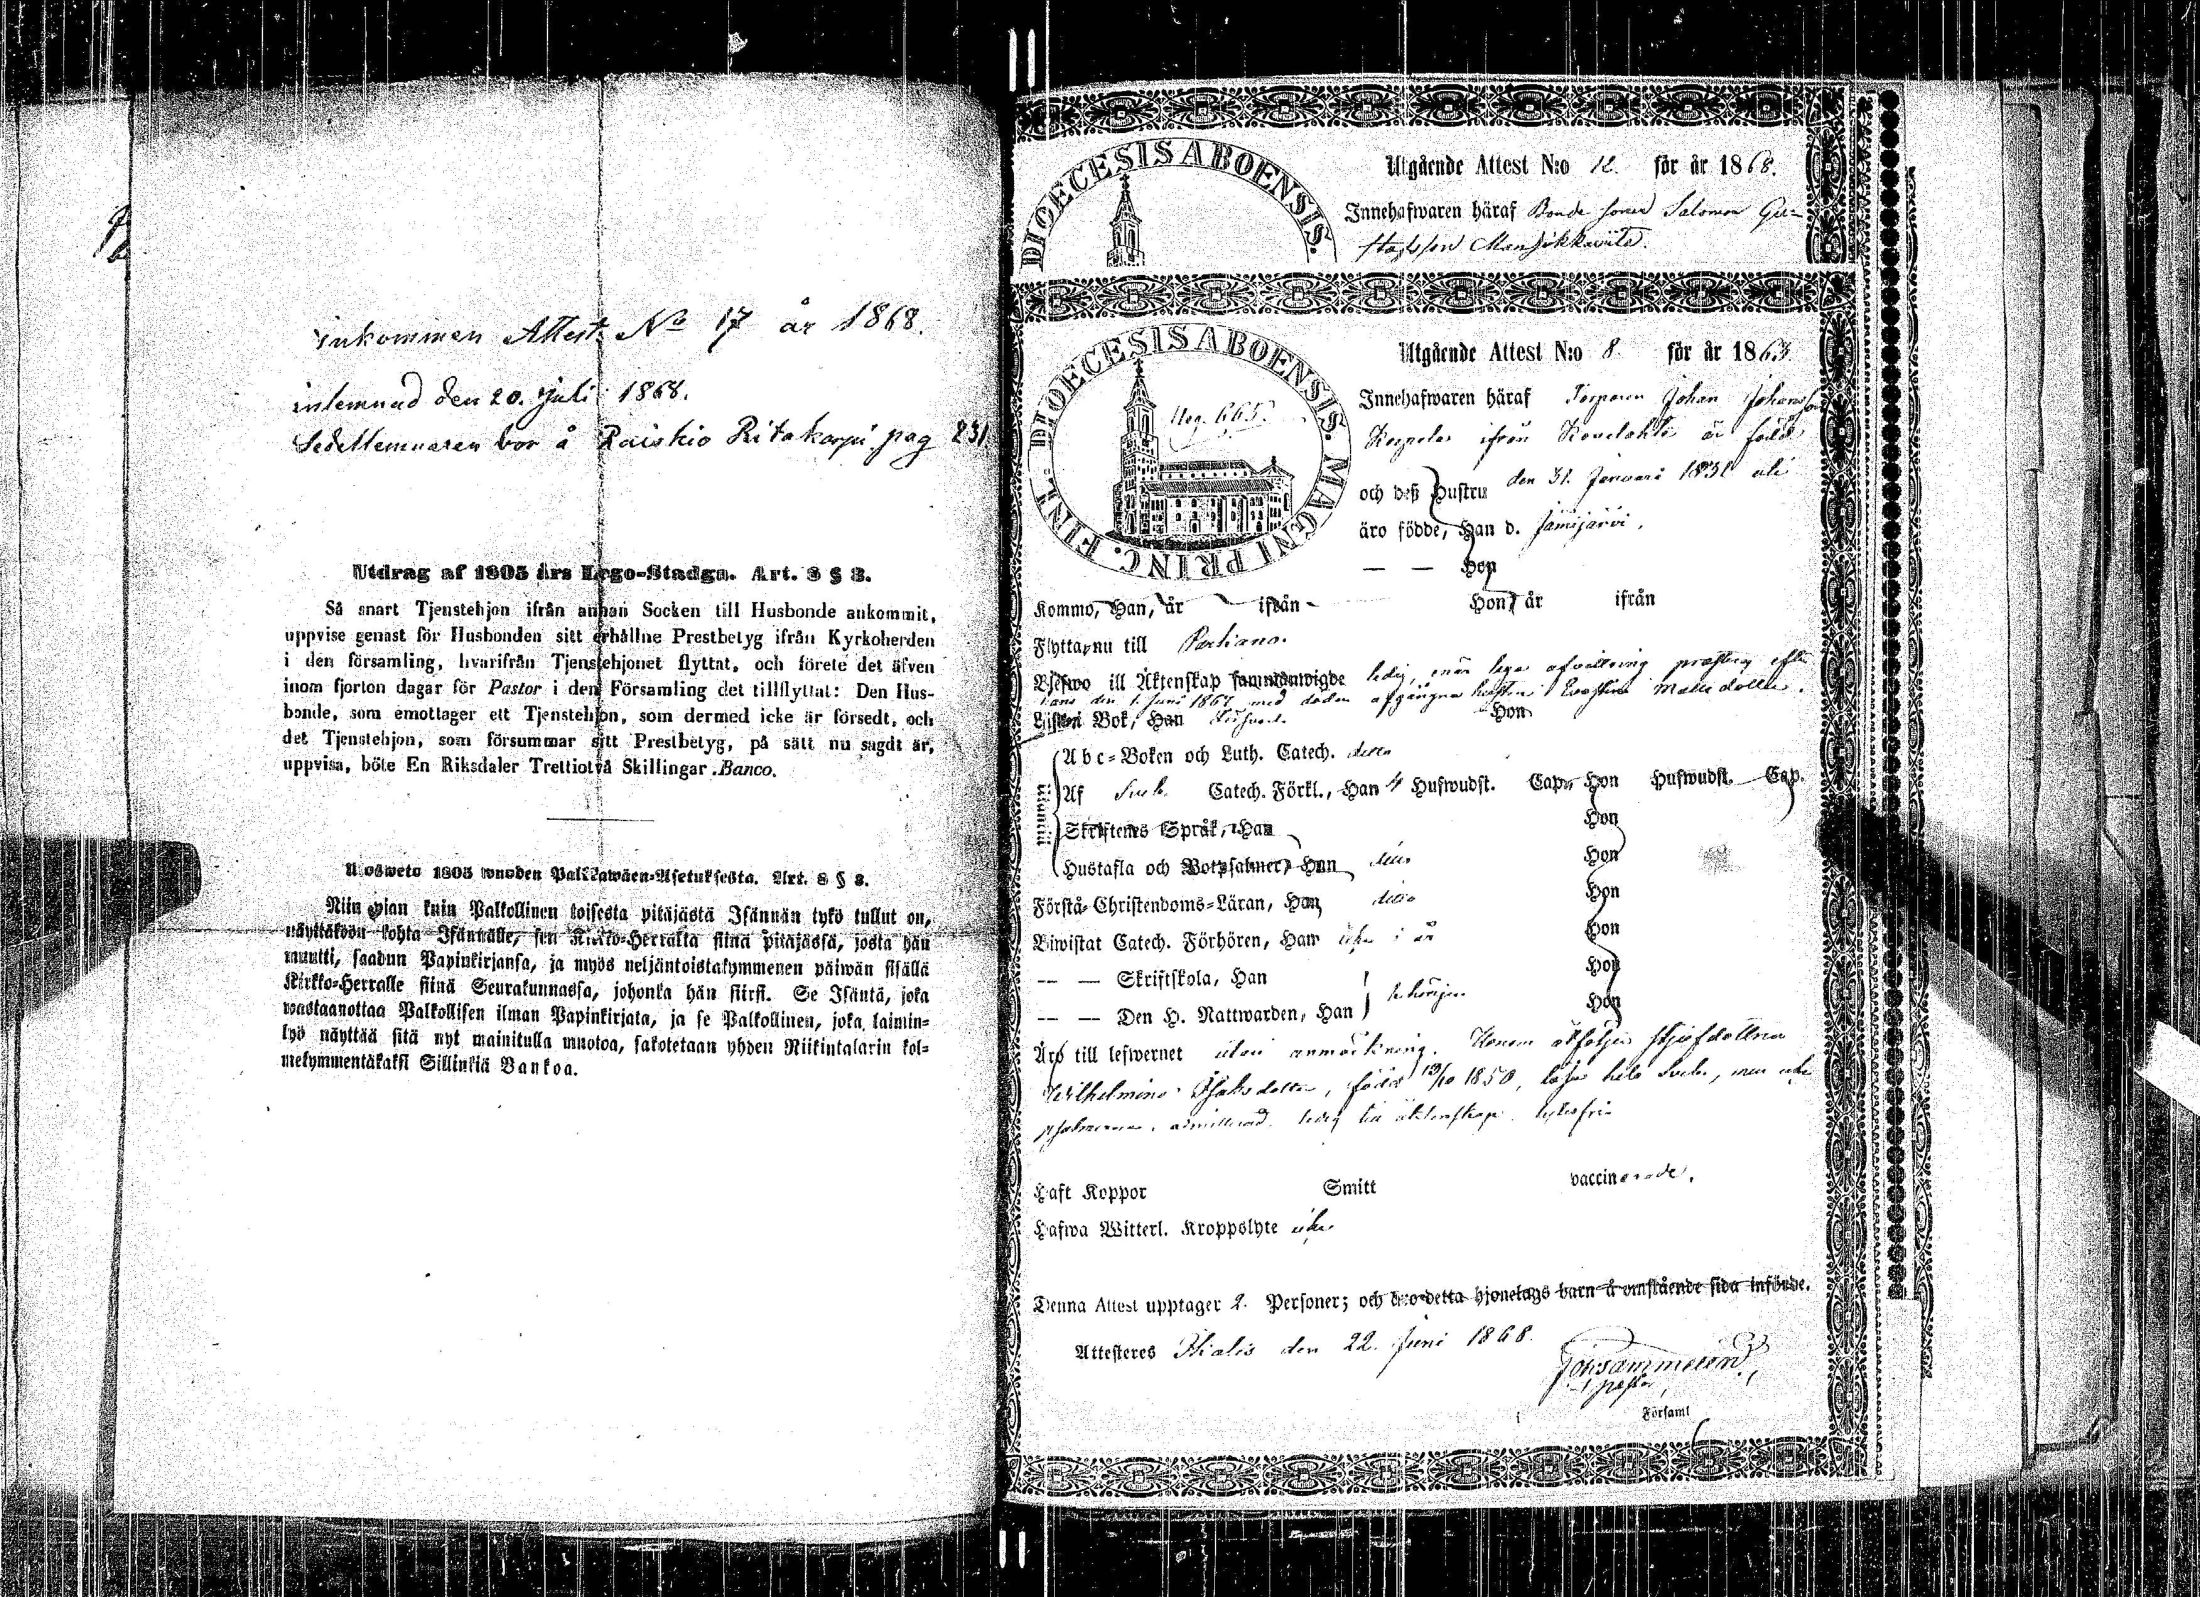 inkommen Attest. No 17 år 1868.
inlemnad den 20. Juli 1868.
Sedellemnaren bor å Raiskio Ritakorpi pag 231
Utdrag af 1805 års Lego-Stadga. Art. 3 § 3.
Så snart Tjenstehjon ifrån annan Socken till Husbonde ankommit,
uppvise genast för Husbonden sitt erhållne Prestbetyg ifrån Kyrkoherden
i den församling, hvarifrån Tjenstehjonet flyttat, och förete det äfven
inom fjorton dagar för Pastor i den Församling det tillflyttat: Den Hus-
bonde, som emottager ett Tjenstehjon, som dermed icke är försedt, och
det Tjenstehjon, som försummar sitt Prestbetyg, på sätt nu sagdt är,
uppvisa, böte En Riksdaler Trettiotvå Skillingar Banco.
Ulosweto 1805 wuoden Palkkawäen-Asetuksesta. Art. 3 § 3.
Niin pian kuin Palkollinen toisesta pitäjästä Isännän tykö tullut on,
näyttäköön kohta Isännälle, sen Kirkko-Herralta siinä pitäjässä, josta hän
muutti, saadun Papinkirjansa, ja myös neljäntoistakymmenen päiwän sisällä
Kirkko-Herralle siinä Seurakunnassa, johonka hän siirsi. Se Isäntä, joka
wastaanottaa Palkollisen ilman Papinkirjata, ja se Palkollinen, joka laimin-
lyö näyttää sitä nyt mainitulla muotoa, sakotetaan yhden Riikintalarin kol-
mekymmentäkaksi Sillinkiä Bankoa.
DIOECESIS ABOENSIS.
Utgående Attest N:o 12. för år 1868.
Innehafwaren häraf Bonde sonen Salomon Gu-
stafsson Mansikkaviita.
DIOECESIS ABOENSIS. MAGNI PRINC. FINL.
Utgående Attest N:o 8. för år 1868
Innehafwaren häraf Torparen Johan Johansson
ifrån Kovelahti är född
och deß Hustru den 31. Januari 1831 uti
äro födde, Han d. Jämijärvi.
— — Hon
Kommo, Han, år ifrån Hon, år ifrån
Flytta, nu till Parkano.
Blefwo ill Äktenskap sammanwigde ledig, men
hans den 1. Juni 1867 med döden afgångna hustru
Läser i Bok, Han Hon
Abc-Boken och Luth. Catech. detto
Af Sveb. Catech. Förkl., Han 4 Hufwudst. Cap. Hon Hufwudst. Cap.
Skriftenes Språk, Han Hon
Hustafla och Botpsalmer, Han Hon
Förstå Christendoms-Läran, Han Hon
Biwistat Catech. Förhören, Han i år Hon
— — Skriftskola, Han Hon
— — Den H. Nattwarden, Han behörigen Hon
Äro till lefwernet utan anmärkning. Honom åtföljer styfdottren
Wilhelmina Isaksdotter, född 19/10 1850,
admitterad. ledig till äktenskap.
Haft Koppor Smitt vaccinerade.
Hafwa Witterl. Kroppslyte
Denna Attest upptager 2. Personer; och äro detta hjonelags barn å omstående sida införde.
Attesteres Ikalis den 22. Juni 1868.
Församl